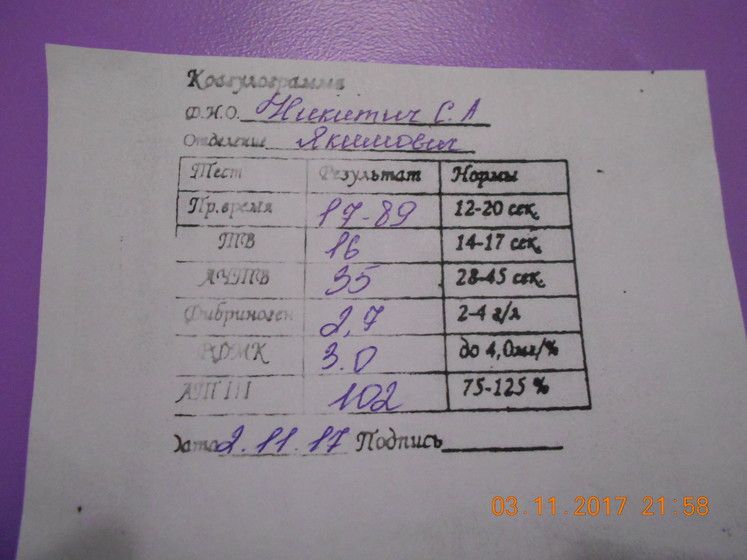 Коагулограмма
Ф.И.О. Никитич С.А
Отделение Якимович
Тест Результат Нормы
Пр.время 17-89 12-20 сек.
ТВ 16 14-17 сек.
АЧТВ 35 28-45 сек.
Фибриноген 2,7 2-4 г/л
РФМК 3.0 до 4,0мг/%
АТ III 102 75-125 %
Дата 2.11.17 Подпись
03.11.2017 21:58